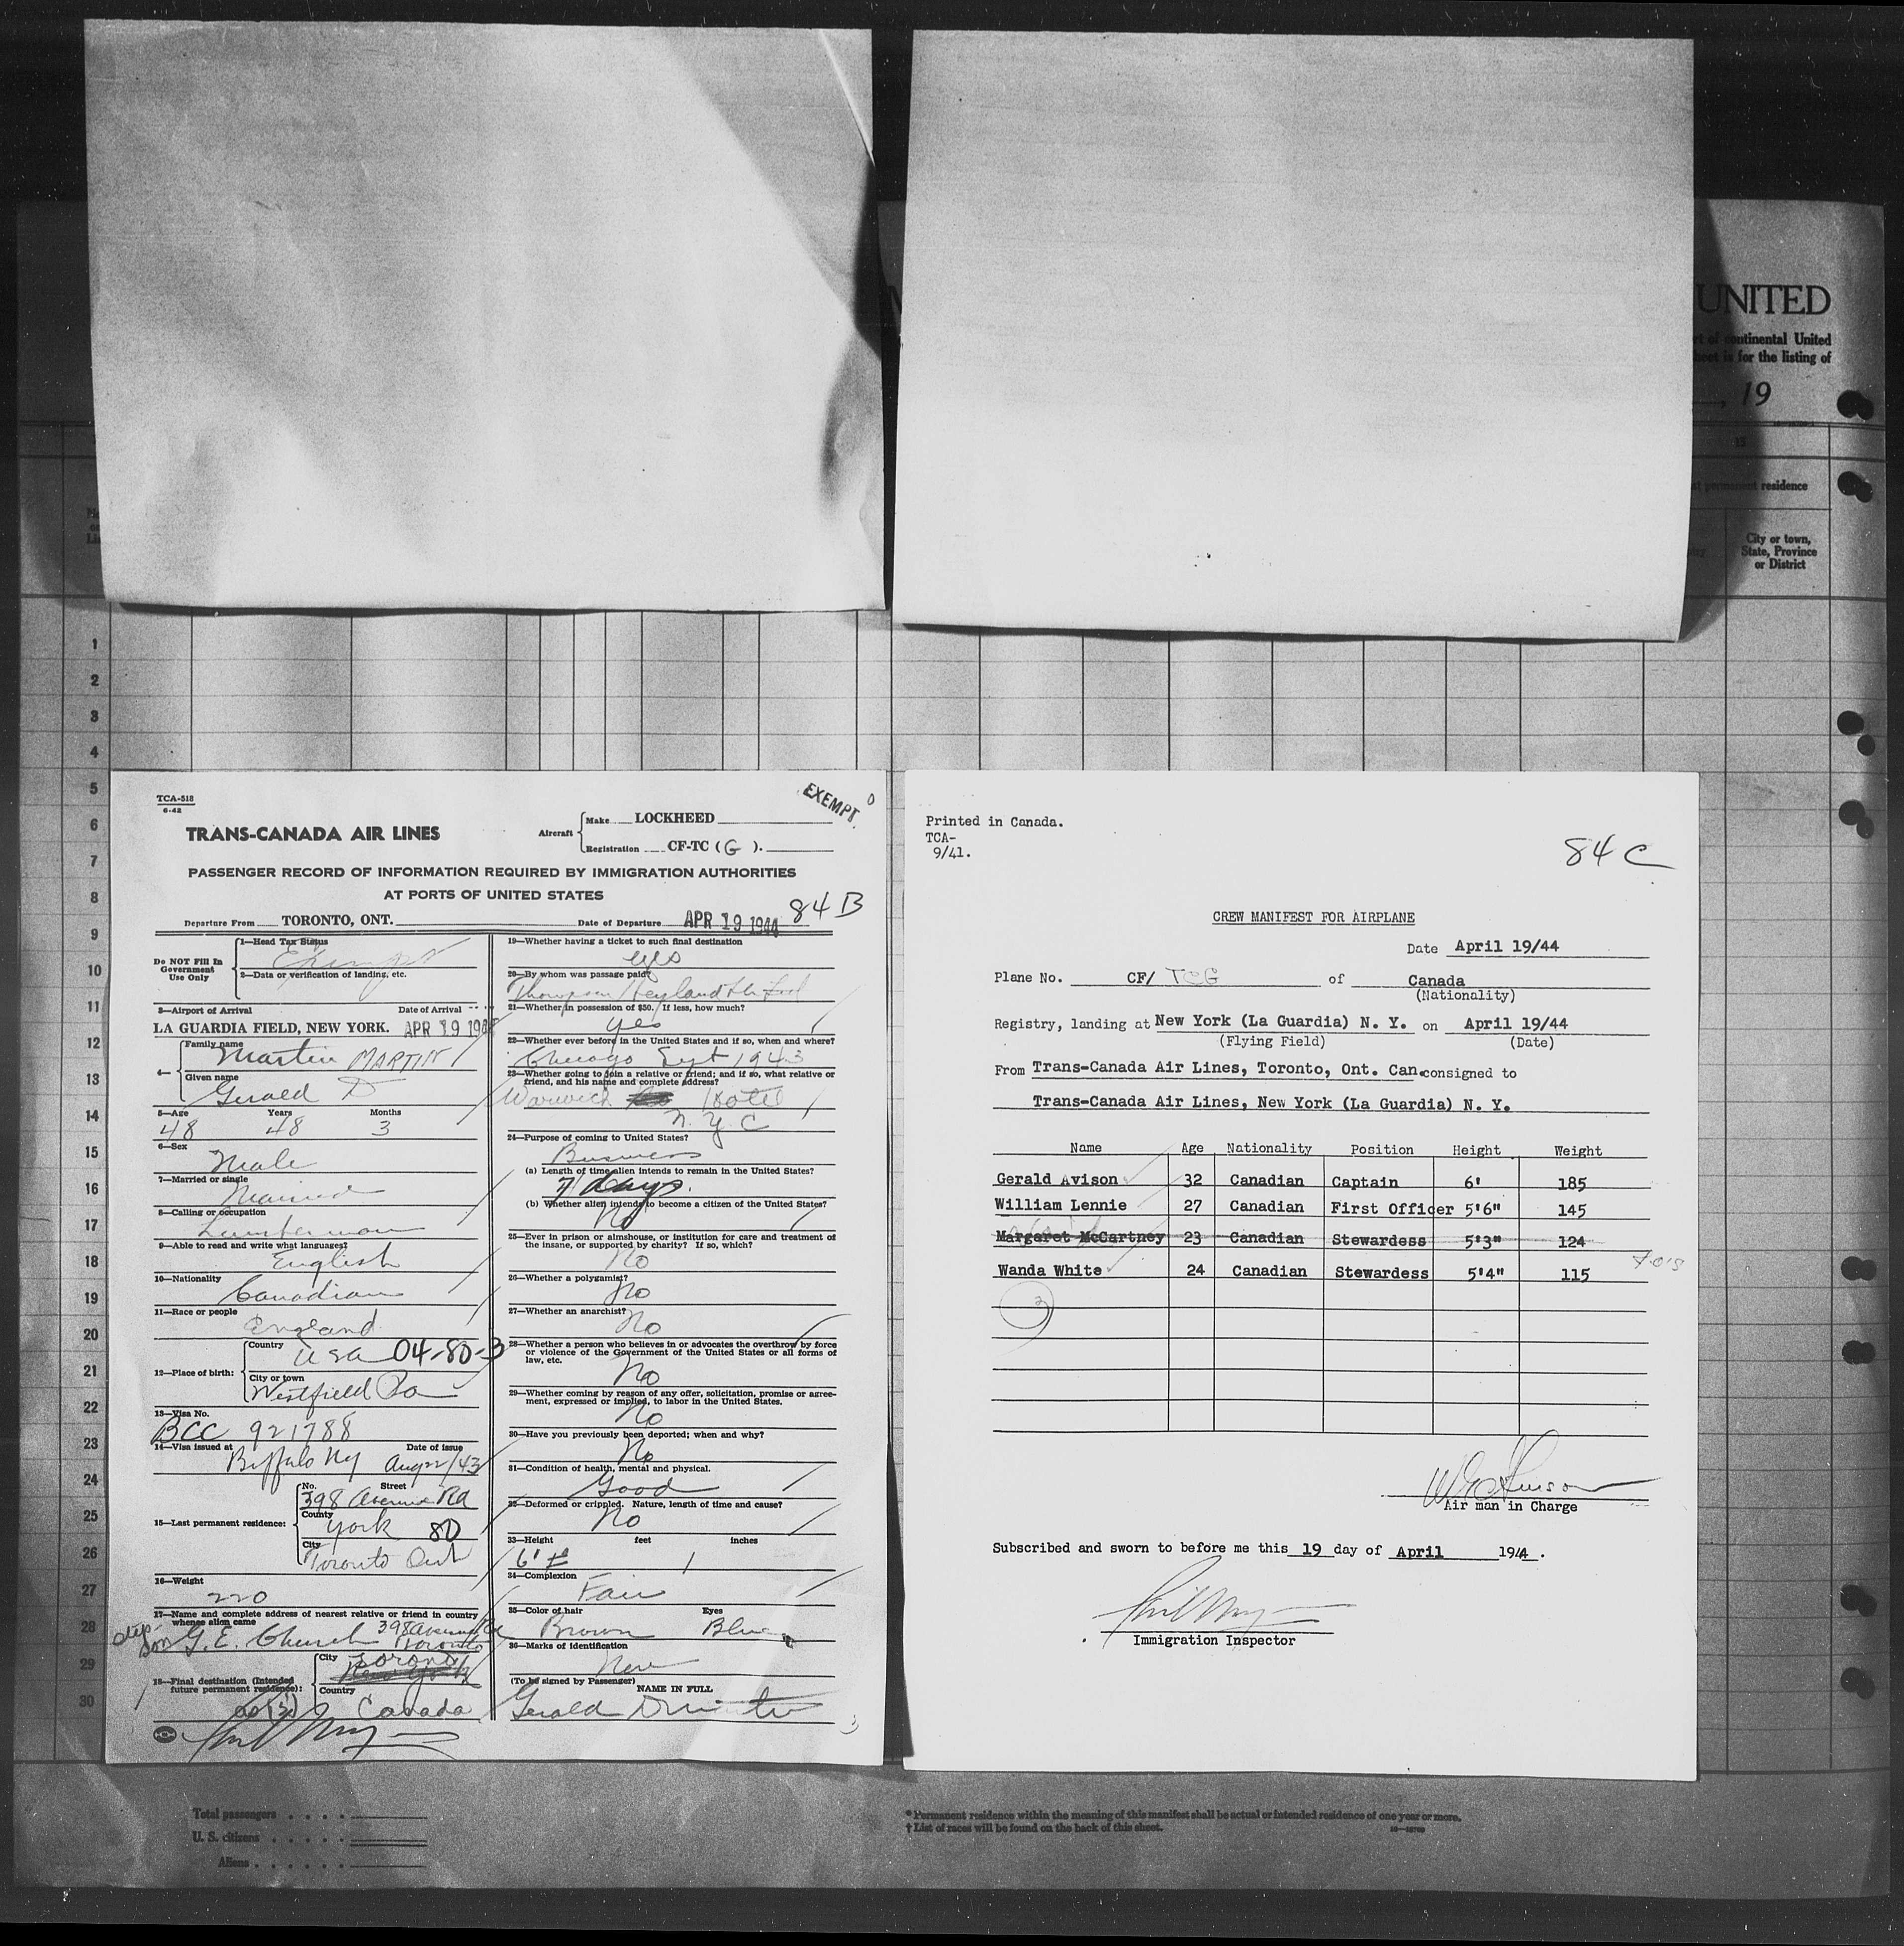 UNITED
rt of continental United
heet is for the listing of
, 19
15
st permanent residence
City or town,
State, Province
or District
1
2
3
4
5
6
7
8
9
10
11
12
13
14
15
16
17
18
19
20
21
22
23
24
25
26
27
28
29
30
TCA-518
6-42
EXEMPT
TRANS-CANADA AIR LINES
Aircraft
Make LOCKHEED
Registration CF-TC (G).
PASSENGER RECORD OF INFORMATION REQUIRED BY IMMIGRATION AUTHORITIES
AT PORTS OF UNITED STATES
84 B
Departure From TORONTO, ONT. Date of Departure APR 19 1944
Do NOT Fill In Government Use Only
1—Head Tax Status
Exempt
2—Data or verification of landing, etc.
3—Airport of Arrival Date of Arrival
LA GUARDIA FIELD, NEW YORK. APR 19 194
4— Family name
Martin MARTIN
Given name
Gerald D
5—Age Years Months
48 48 3
6—Sex
Male
7—Married or single
Married
8—Calling or occupation
Lumberman
9—Able to read and write what languages?
English
10—Nationality
Canadian
11—Race or people
England
12—Place of birth:
Country
USA 04-80-3
City or town
Westfield Pa
13—Visa No.
BCC 921788
14—Visa issued at Date of issue
Buffalo NY Aug 22/43
15—Last permanent residence:
No. Street
398 Avenue Rd
County
York 80
City
Toronto Ont
16—Weight
220
17—Name and complete address of nearest relative or friend in country
whence alien came
step son G. E. Church 398 Avenue Rd
Toronto
18—Final destination (Intended
future permanent residence):
City Toronto
New York
Country
Canada
19—Whether having a ticket to such final destination
yes
20—By whom was passage paid?
Thompson Heyland
21—Whether in possession of $50. If less, how much?
yes
22—Whether ever before in the United States and if so, when and where?
Chicago Sept 1943
23—Whether going to join a relative or friend; and if so, what relative or
friend, and his name and complete address?
Warwick Hotel
N. Y. C
24—Purpose of coming to United States?
Business
(a) Length of time alien intends to remain in the United States?
7 days.
(b) Whether alien intends to become a citizen of the United States?
No
25—Ever in prison or almshouse, or institution for care and treatment of
the insane, or supported by charity? If so, which?
No
26—Whether a polygamist?
No
27—Whether an anarchist?
No
28—Whether a person who believes in or advocates the overthrow by force
or violence of the Government of the United States or all forms of
law, etc.
No
29—Whether coming by reason of any offer, solicitation, promise or agree-
ment, expressed or implied, to labor in the United States.
No
30—Have you previously been deported; when and why?
No
31—Condition of health, mental and physical.
Good
32—Deformed or crippled. Nature, length of time and cause?
No
33—Height feet inches
6' 1
34—Complexion
Fair
35—Color of hair Eyes
Brown Blue
36—Marks of identification
(To be signed by Passenger) NAME IN FULL
Gerald D Martin
3
Printed in Canada.
TCA-
9/41.
84 C
CREW MANIFEST FOR AIRPLANE
Date April 19/44
Plane No. CF/ TCG of Canada
(Nationality)
Registry, landing at New York (La Guardia) N. Y. on April 19/44
(Flying Field) (Date)
From Trans-Canada Air Lines, Toronto, Ont. Can. consigned to
Trans-Canada Air Lines, New York (La Guardia) N. Y.
Name Age Nationality Position Height Weight
Gerald Avison 32 Canadian Captain 6' 185
William Lennie 27 Canadian First Officer 5'6" 145
Margaret McCartney 23 Canadian Stewardess 5'3" 124
Wanda White 24 Canadian Stewardess 5'4" 115
3
Air man in Charge
Subscribed and sworn to before me this 19 day of April 1944.
Immigration Inspector
Total passengers . . . .
U. S. citizens . . . . .
Aliens . . . . . .
* Permanent residence within the meaning of this manifest shall be actual or intended residence of one year or more.
† List of races will be found on the back of this sheet.